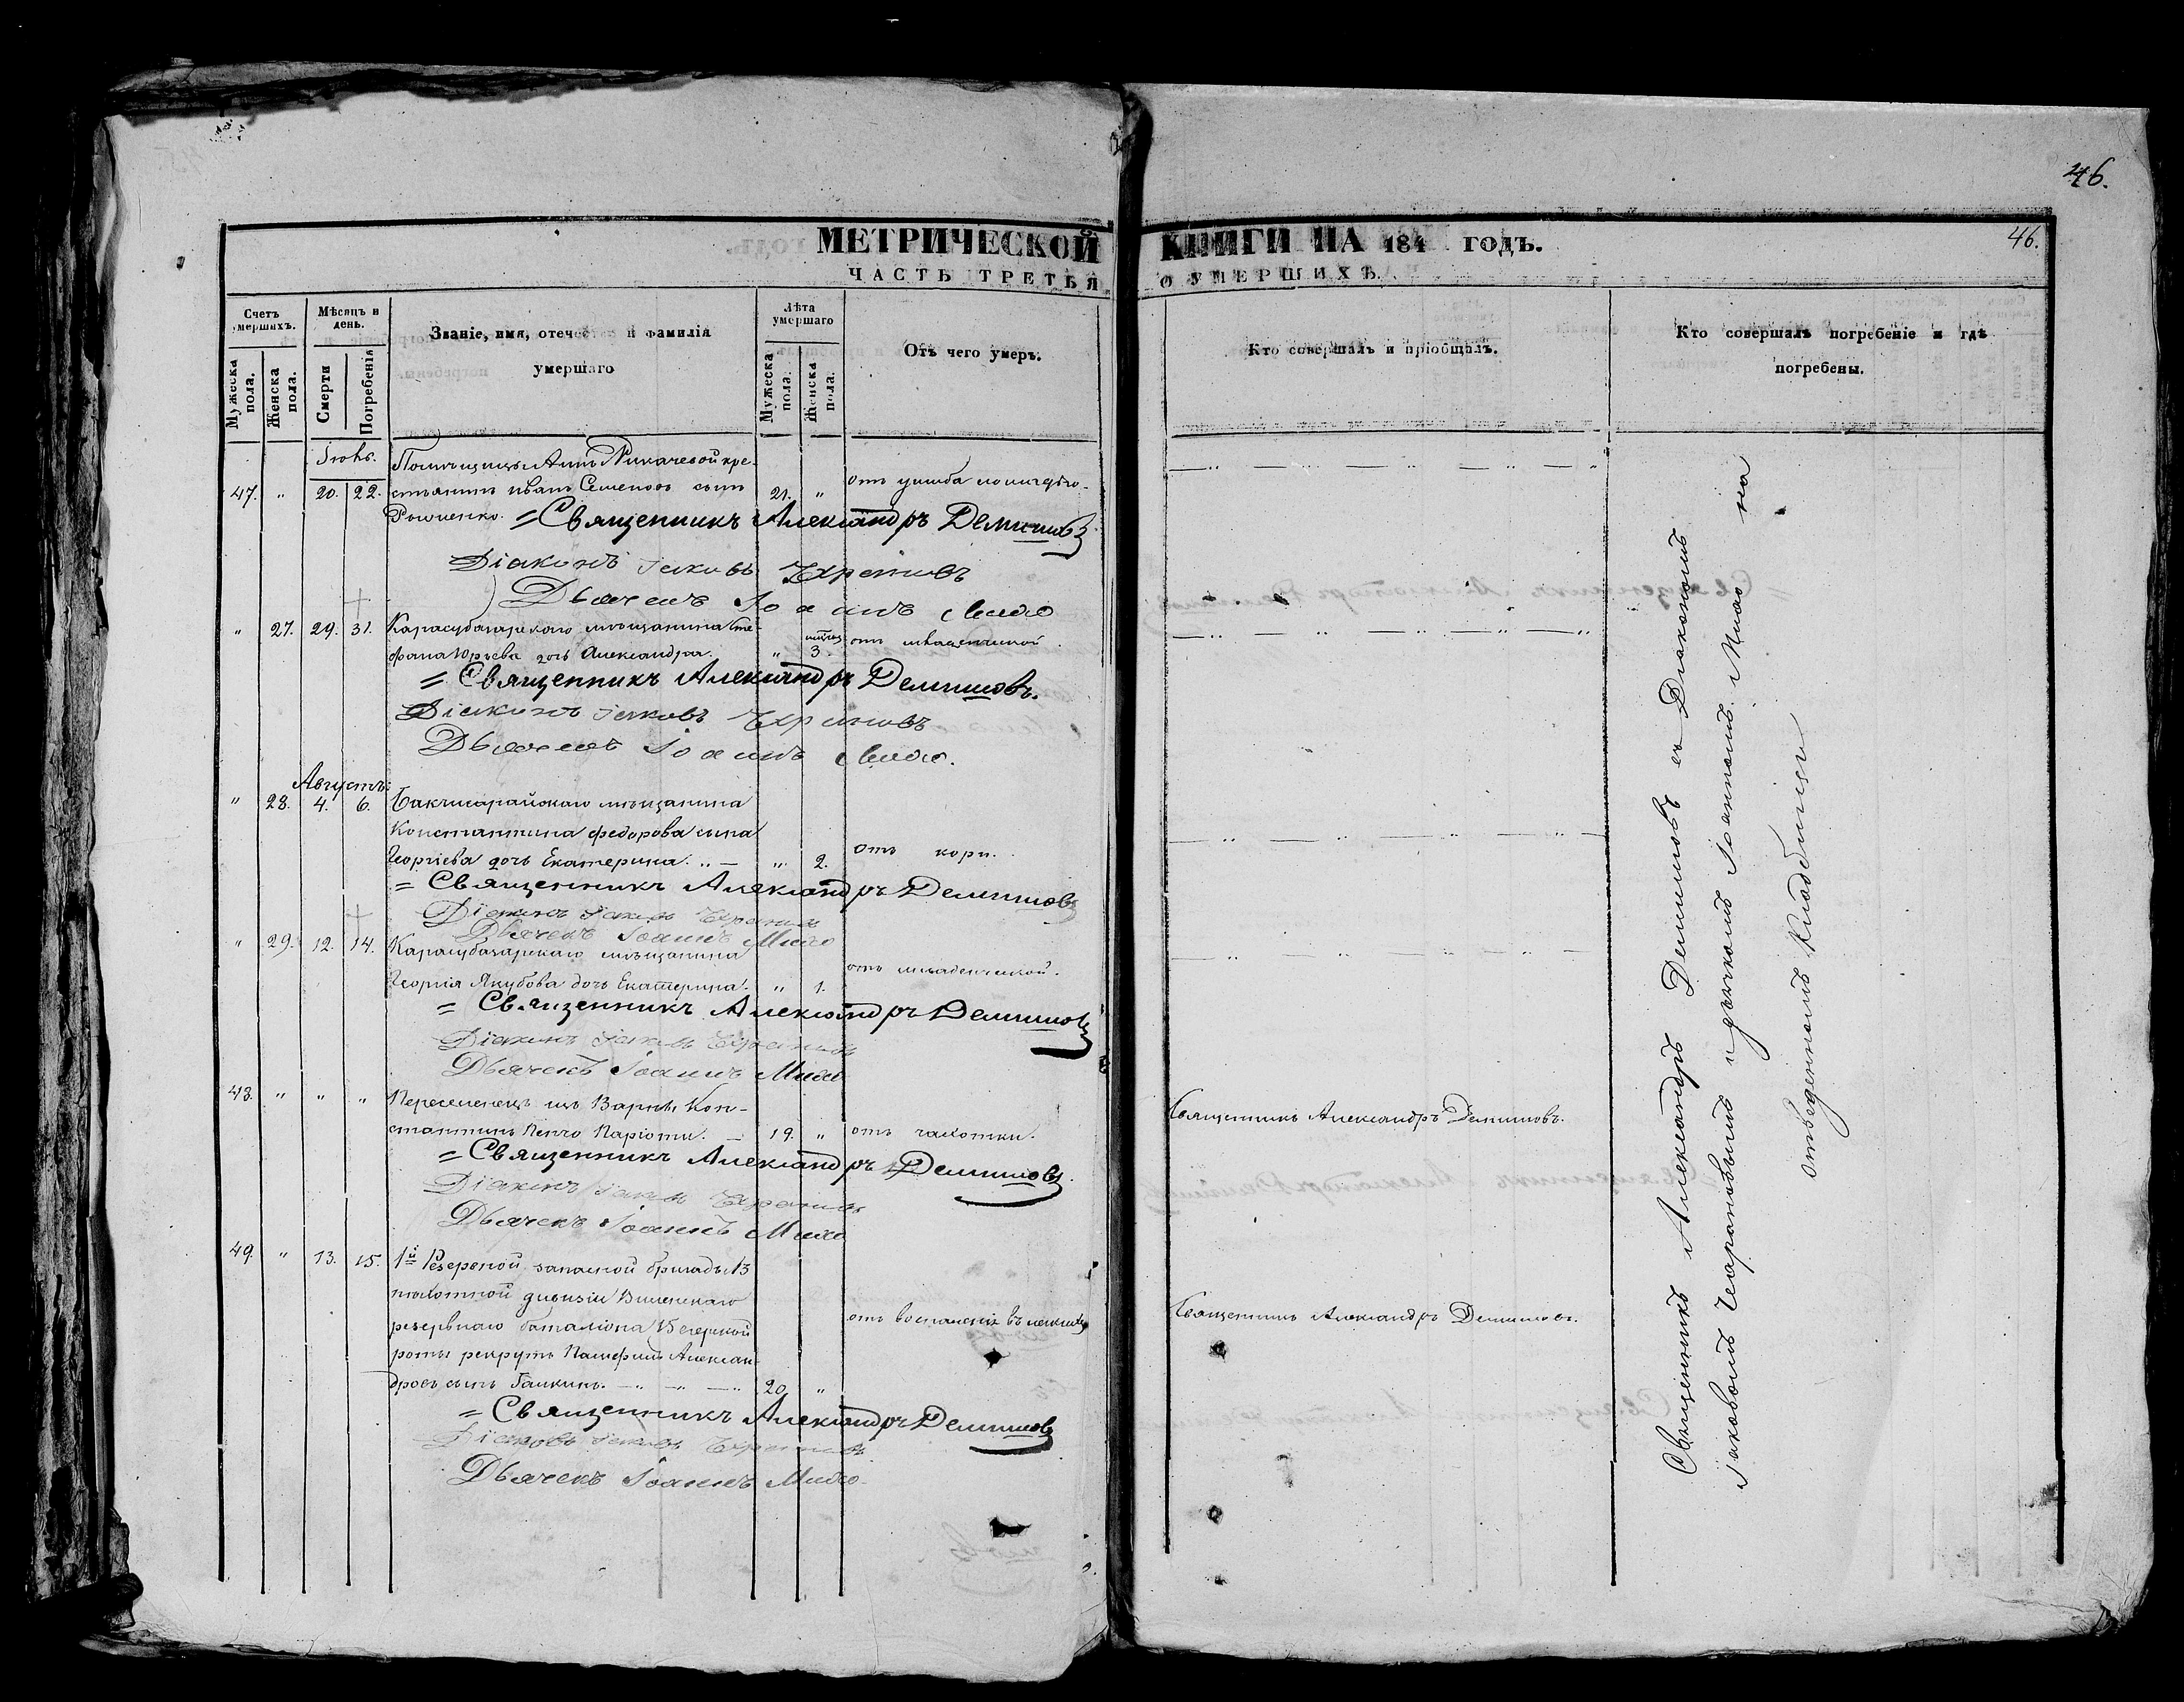 46.
МЕТРИЧЕСКОЙ КНИГИ НА 184 ГОДЪ.
46.
ЧАСТЬ ТРЕТЬЯ О УМЕРШИХЪ.
Счетъ умершихъ.
Мужеска пола.
Женска пола.
Мѣсяцъ и день.
Смерти
Погребенія
Званіе, имя, отечество и фамилія
умершаго
Лѣта умершаго
Мужеска пола.
Женска пола.
Отъ чего умеръ.
Кто совершалъ и пріобщалъ.
Кто совершалъ погребеніе и гдѣ
погребены.
Помѣщицы Анны кре-
47. " 20. 22. стьянинъ Иванъ Семеновъ сынъ 21. " отъ ушиба
= Священникъ Александръ Демишовъ
Діаконъ Іаковъ
Дьячекъ Іоаннъ Михо
" 27. 29. 31. Карасубазарскаго мѣщанина Сте-
фана Юрьева дочь Александра. " 3. отъ младенческой.
= Священникъ Александръ Демишовъ.
Діаконъ Іаковъ
Дьячекъ Іоаннъ Михо.
Августъ:
" 28. 4. 6. Бакчисарайскаго мѣщанина
Константина Федорова сына
Георгіева дочь Екатерина. " 2. отъ кори.
= Священникъ Александръ Демишовъ
Діаконъ Іаковъ
Дьячекъ Іоаннъ Михо
" 29. 12. 14. Карасубазарскаго мѣщанина
Георгія Якубова дочь Екатерина. " 1. отъ младенческой.
= Священникъ Александръ Демишовъ
Діаконъ Іаковъ
Дьячекъ Іоаннъ Михо
48. " " " Переселенецъ изъ Варны Кон-
стантинъ Паріоти. 19. " отъ чахотки.
Священникъ Александръ Демишовъ.
= Священникъ Александръ Демишовъ.
Діаконъ Іаковъ
Дьячекъ Іоаннъ Михо
49. " 13. 15. 1й Резервной запасной бригады 13
пѣхотной дивизіи Виленскаго
резервнаго баталіона 15 егерской
роты рекрутъ Памфилъ Алексан-
дровъ сынъ Галкинъ. 20 "
отъ воспаленія въ легкихъ
Священникъ Александръ Демишовъ.
= Священникъ Александръ Демишовъ
Діаконъ Іаковъ
Дьячекъ Іоаннъ Михо.
Священникъ Александръ Демишовъ съ Діакономъ
Іаковомъ и дьячкомъ Іоанномъ Михо на
отведенномъ кладбищѣ